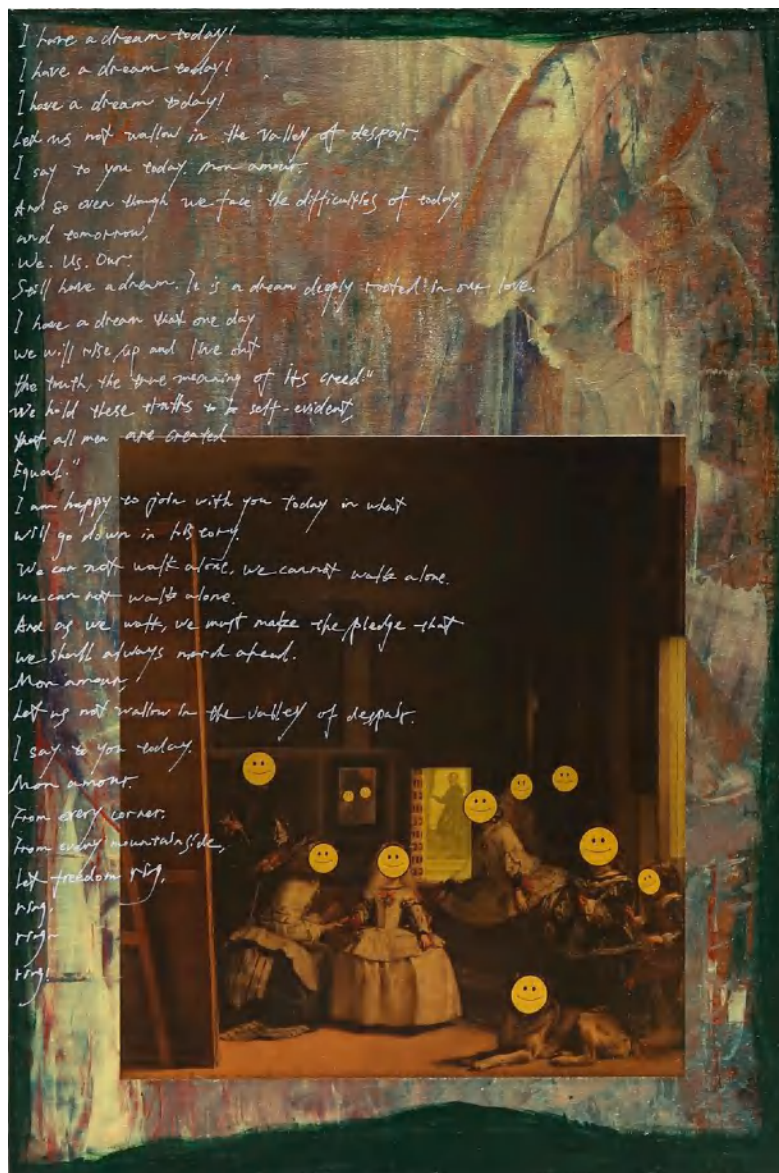 I have a dream today!
I have a dream today!
I have a dream today!
Let us not wallow in the valley of despair.
I say to you today. mon amour.
And so even though we face the difficulties of today,
and tomorrow,
We. Us. Our.
Still have a dream. It is a dream deeply rooted in our love.
I have a dream that one day
we will rise up and live out
the truth, the true meaning of its creed:"
We hold these truths to be self-evident,
that all men are created
Equal."
I am happy to join with you today in what
will go down in history.
We can not walk alone, we cannot walk alone.
we can not walk alone.
And as we walk, we must make the pledge that
we shall always march ahead.
Mon amour,
Let us not wallow in the valley of despair.
I say to you today.
Mon amour.
From every corner.
From every mountainside,
Let freedom ring,
ring.
ring.
ring!